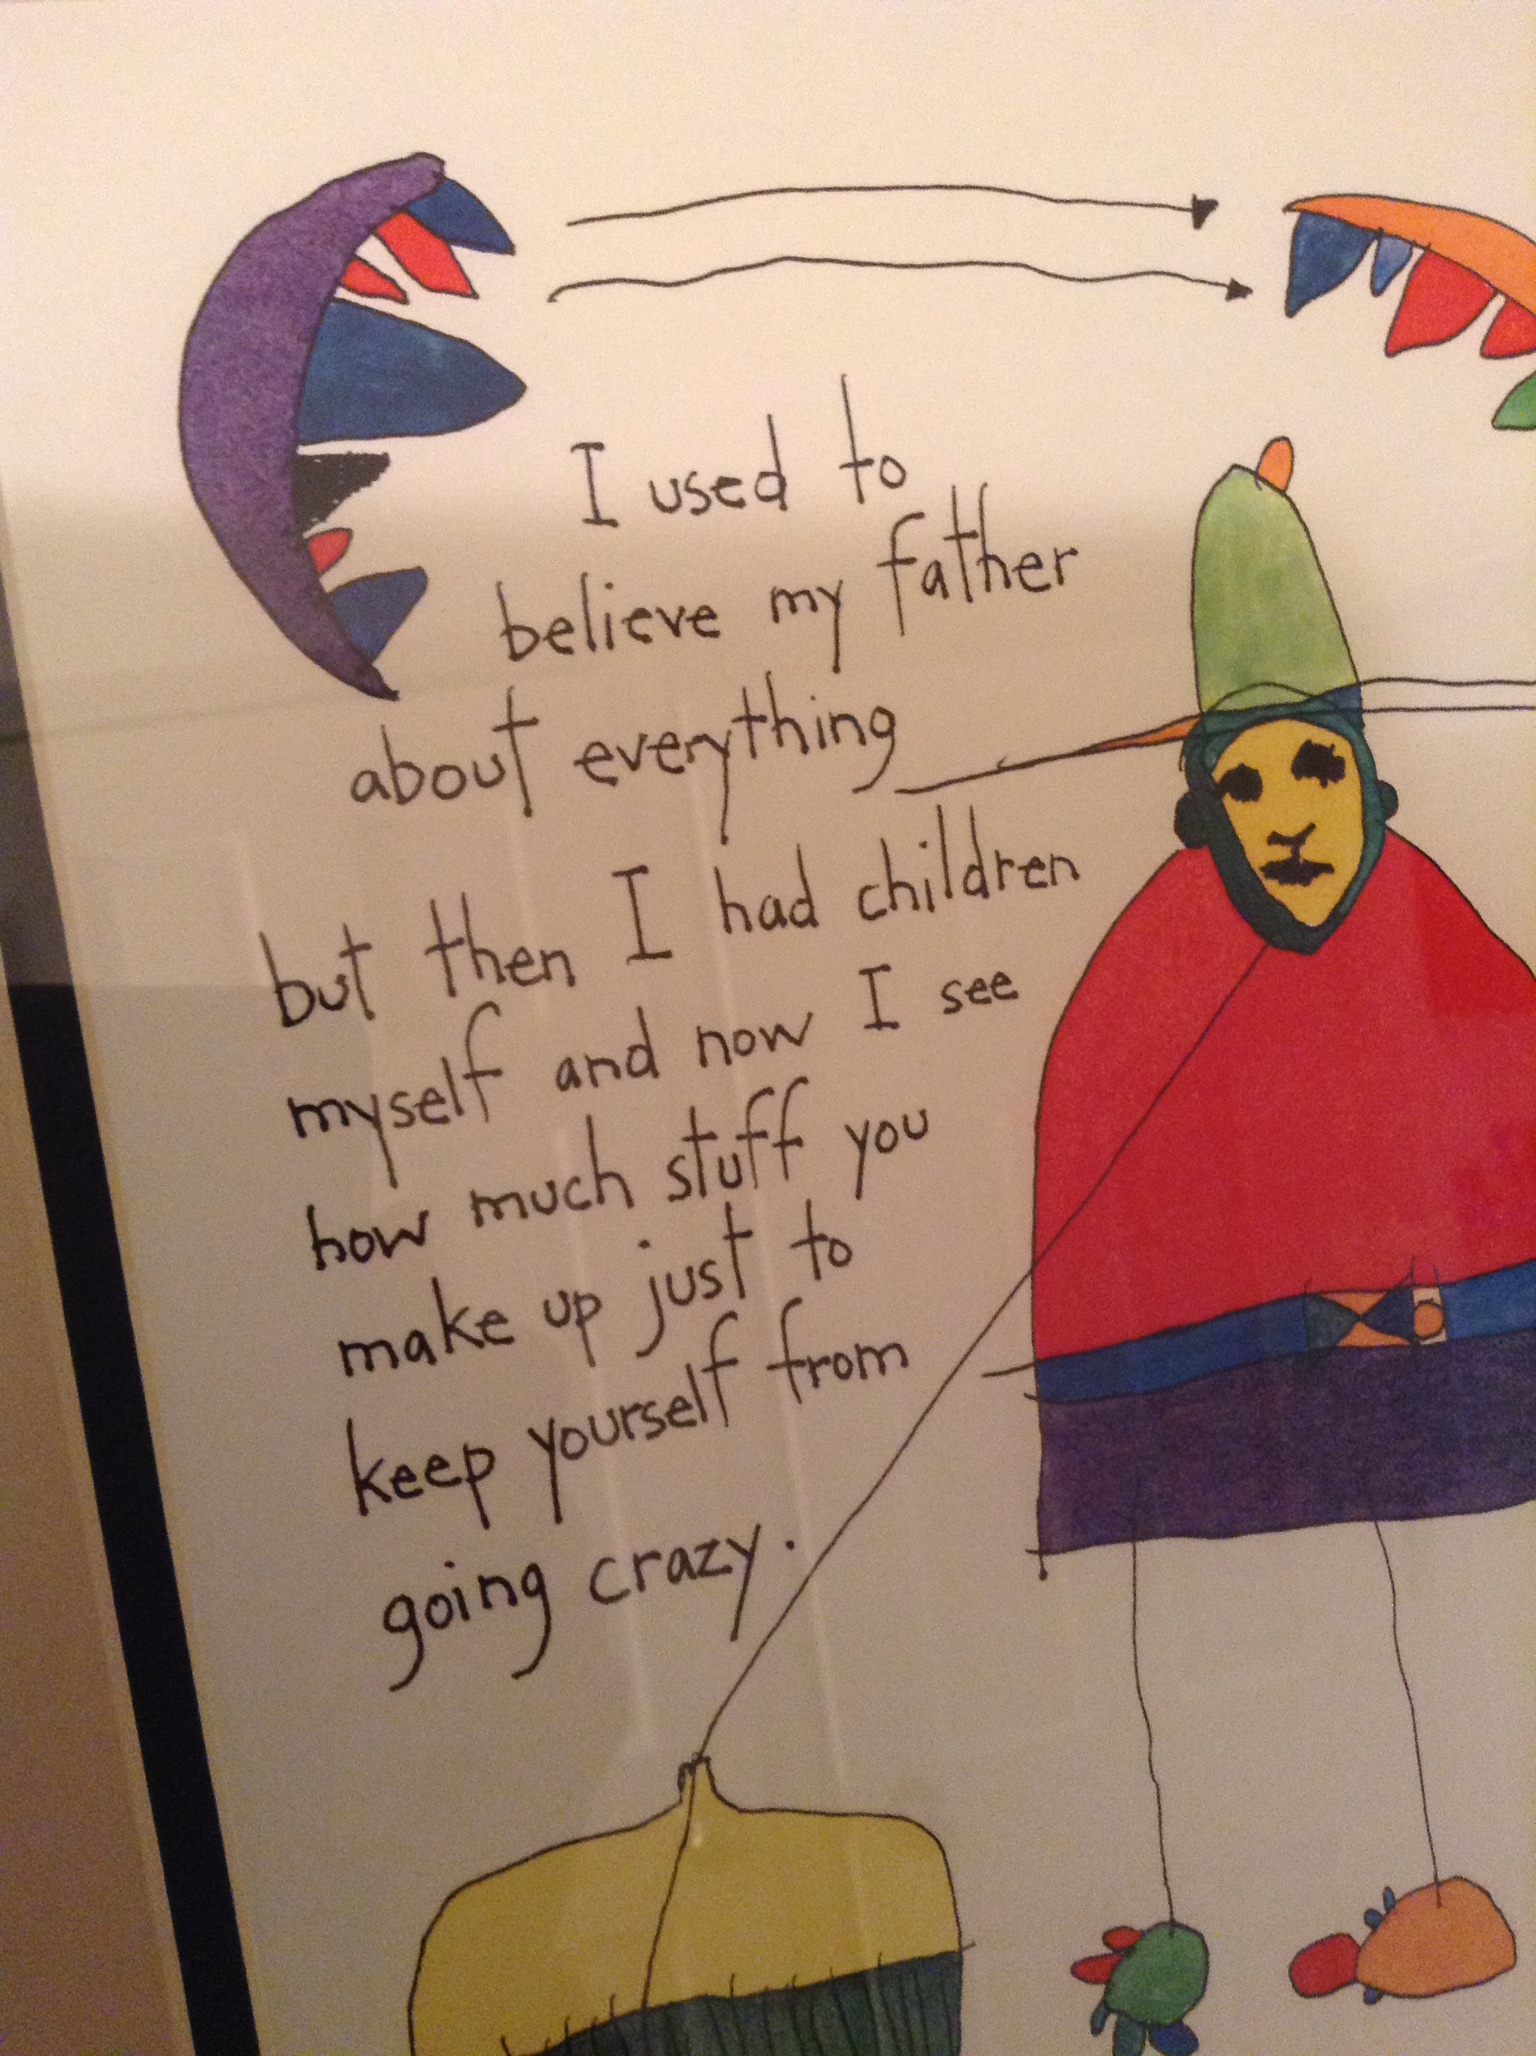 I used to
believe my father
about everything
but then I had children
myself and now I see
how much stuff you
make up just to
keep yourself from
going crazy.